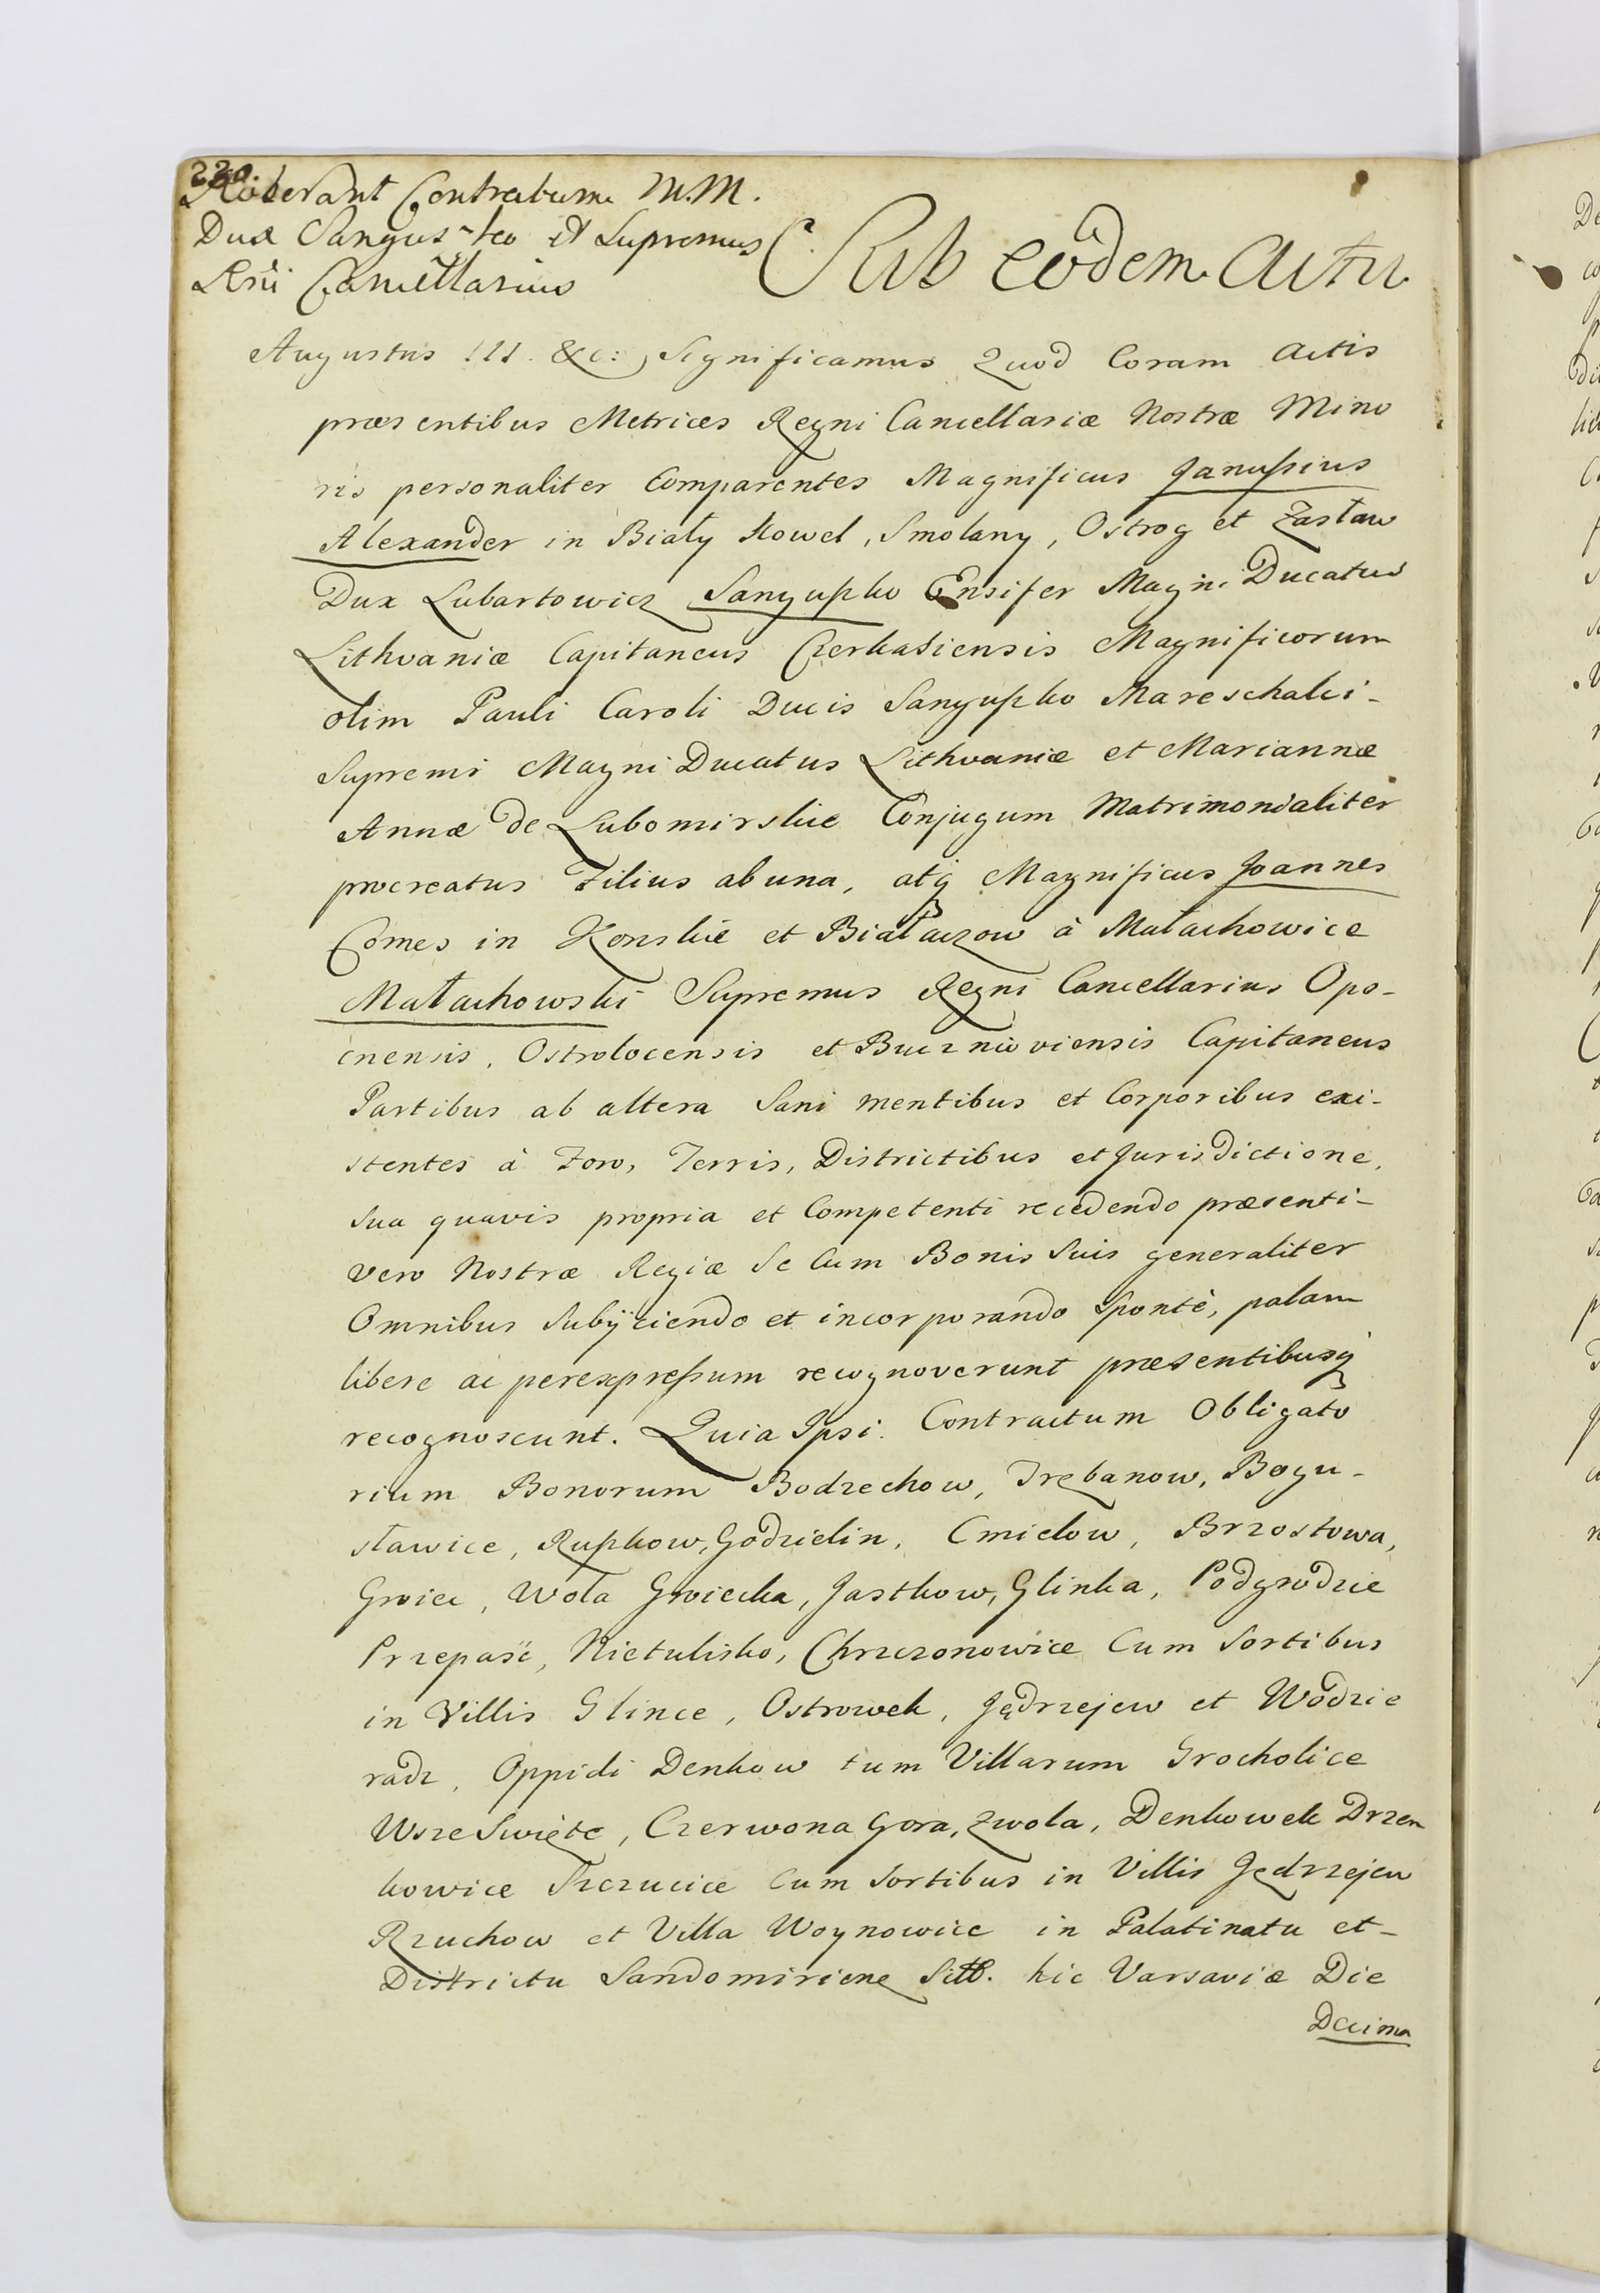 220.
Roborant Contractum M.M.
Dux Sanguszko et Supremus
Rñi Cancellarius
Sub eodem Actu
Augustus III. &c: Significamus Quod Coram Actis
præsentibus Metrices Regni Cancellariæ Nostræ Mino
ris personaliter Comparentes Magnificus Janussius
Alexander in Biały Kowel, Smolany, Ostrog et Zasław
Dux Lubartowicz Sanguszko Ensifer Magni Ducatus
Lithvaniæ Capitaneus Czerkasiensis Magnificorum
olim Pauli Caroli Ducis Sanguszko Mareschalci-
Supremi Magni Ducatus Lithvaniæ et Mariannæ
Annæ de Lubomirskie Conjugum Matrimonialiter
procreatus Filius ab una, atq Magnificus Joannes
Comes in Konskie et Białaczow à Małachowice
Małachowski Supremus Regni Cancellarius Opo-
cnensis, Ostrolocensis et Buczniowiensis Capitaneus
Partibus ab altera Sani mentibus et Corporibus exi-
stentes à Foro, Terris, Districtibus et Jurisdictione,
sua quavis propria et Competenti recedendo præsenti-
vero Nostræ Regiæ Se Cum Bonis Suis generaliter
Omnibus Subÿciendo et incorporando Sponte, palam
libere ac perexpressum recognoverunt præsentibusq
recognoscunt. Quia Ipsi Contractum Obligato
rium Bonorum Bodzechow, Trębanow, Bogu-
sławice, Rupkow, Godzielin, Cmielow, Brzostowa,
Grociec, Wola Grojecka, Jastkow, Glinka, Podgrodzie
Przepaść, Nietulisko, Chrzczonowice Cum Sortibus
in Villis Glince, Ostrowek, Jędrzejew et Wodzie
radz, Oppidi Denkow tum Villarum Grocholice
Wsze Swięte, Czerwona Gora, Zwola, Denkowek Drzen
kowice Szczucice Cum Sortibus in Villis Jędrzejew
Rzuchow et Villa Woynowice in Palatinatu et-
Districtu Sandomiriene Sitt. hic Varsaviæ Die
Decima